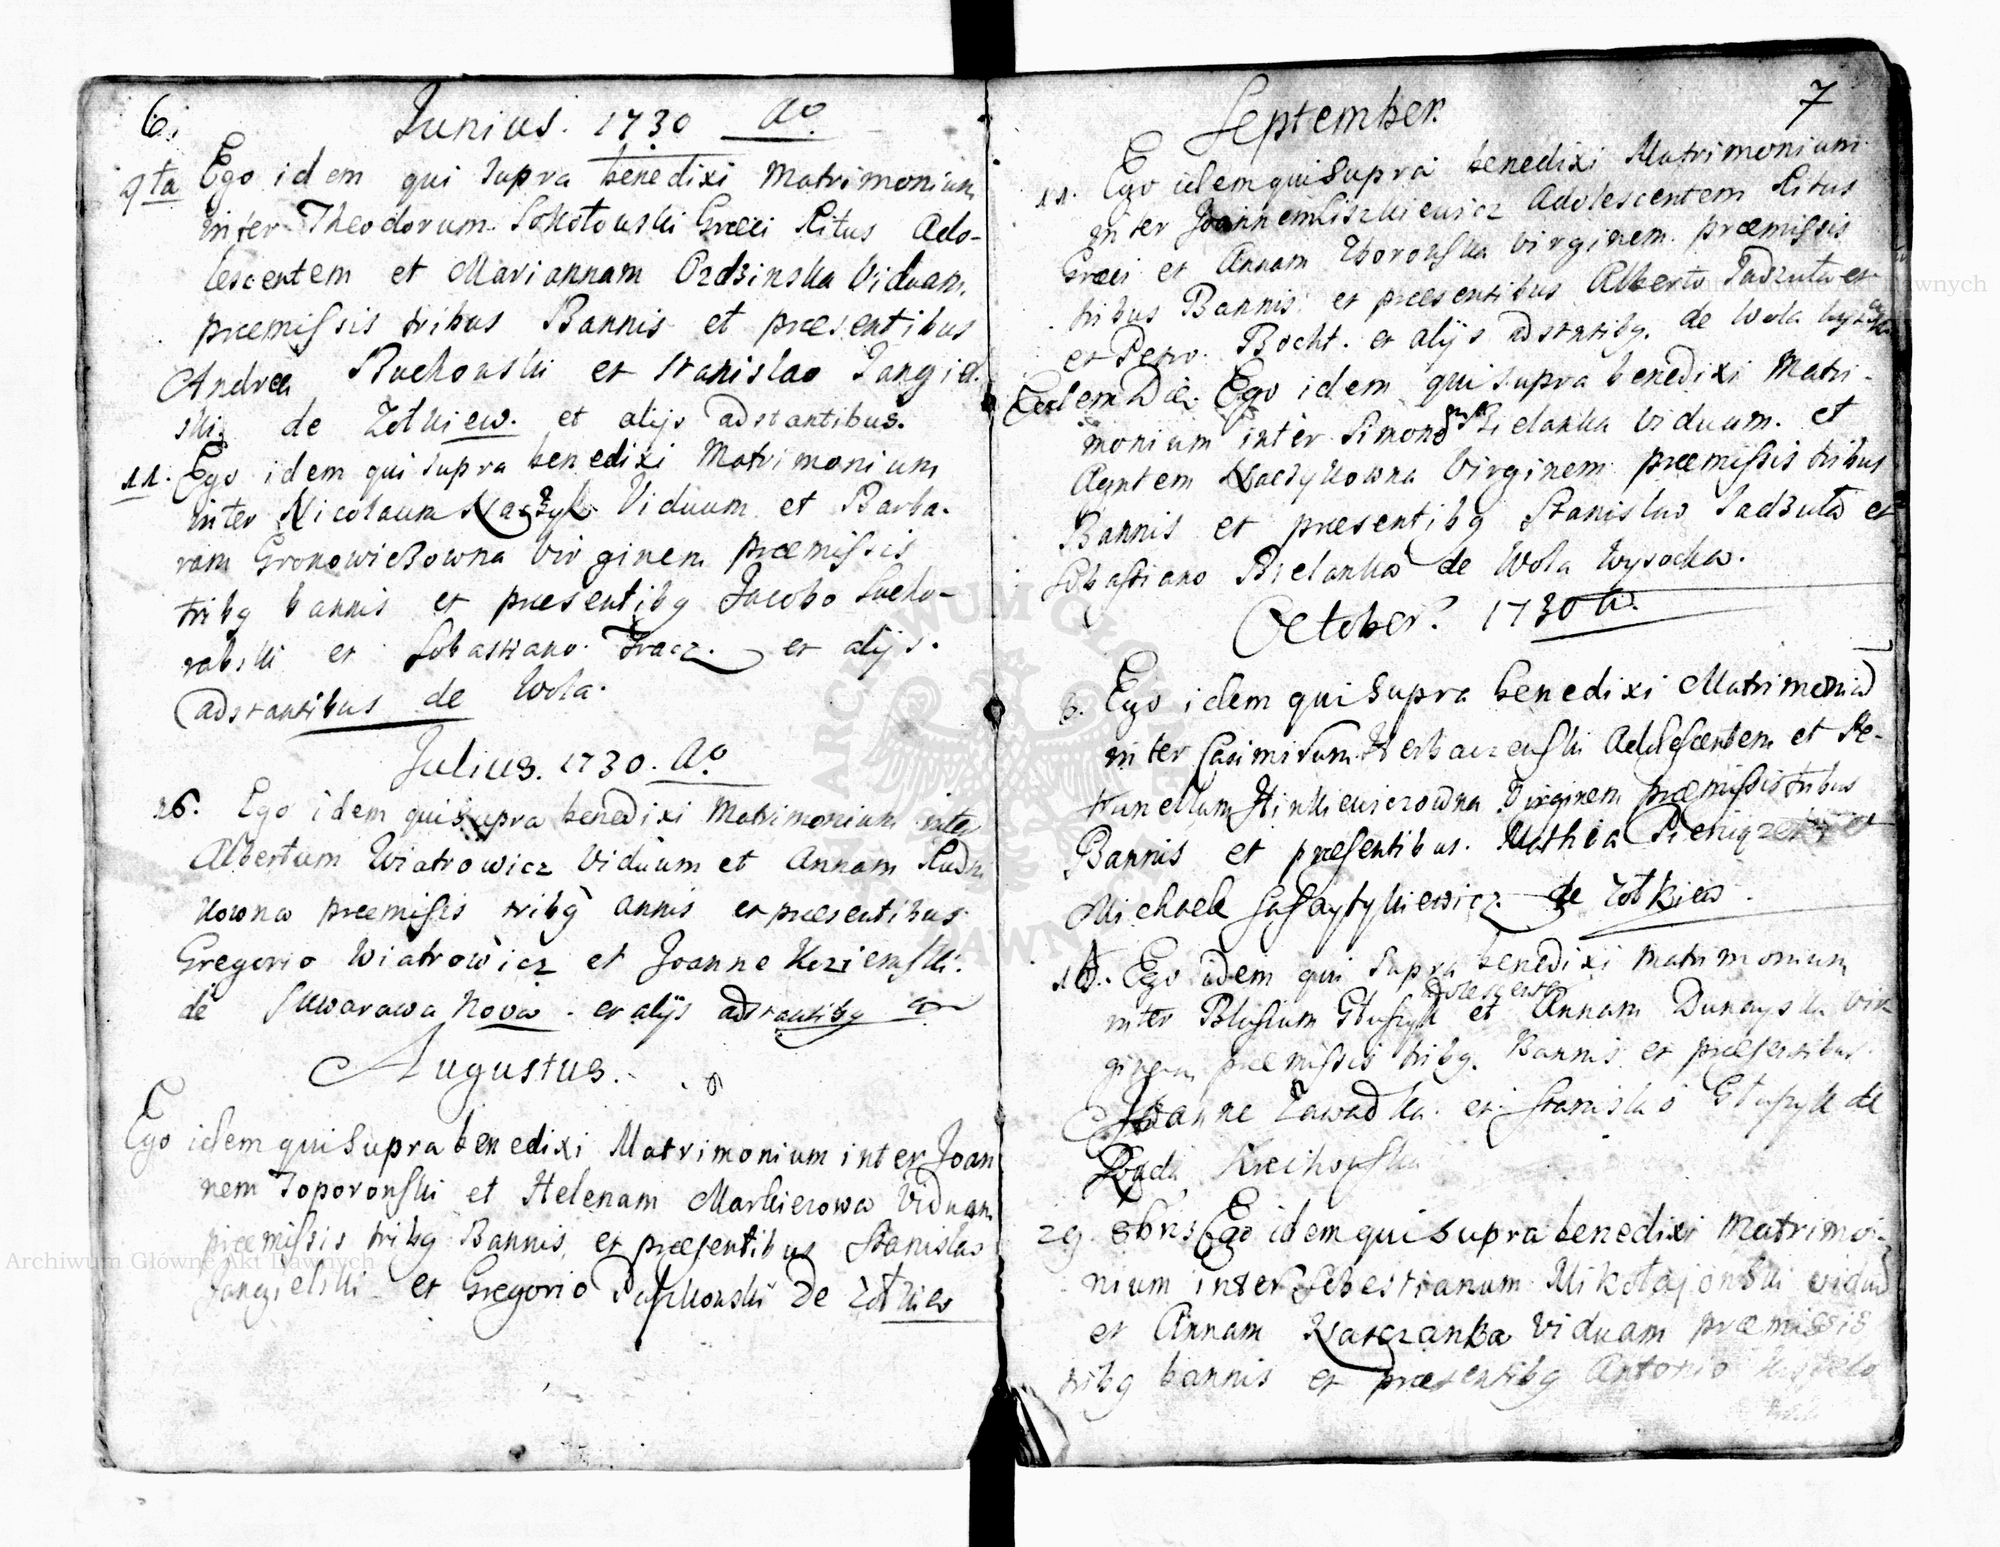 6.
Junius. 1730 Ao.
9ta Ego idem qui supra benedixi Matrimonium
inter Theodorum Sokołowski Græci Ritus Ado-
lescentem et Mariannam Ozdzinska Viduam.
præmissis tribus Bannis et præsentibus
Andrea Ruchowski et Stanislao Jangiel-
ski de Zołkiew. et alijs adstantibus.
11. Ego idem qui supra benedixi Matrimonium
inter Nicolaum Naczyk Viduum et Barba-
ram Gronowiczowna Virginem præmissis
tribq bannis et præsentibq Jacobo Sucho-
rabski et Sobastiano Tracz. et alijs.
adstantibus de Wola.
Julius. 1730. Ao.
26. Ego idem qui supra benedixi Matrimonium inter
Albertum Wiatrowicz Viduum et Annam Rudni
kowna præmissis tribq annis et præsentibus
Gregorio Wiatrowicz et Joanne
de Skwarawa Nova. et alijs adstantibq
Augustus.
Ego idem qui supra benedixi Matrimonium inter Joan
nem Toporowski et Helenam Markierowa Viduam
præmissis tribq Bannis, et præsentibus Stanislao
Jangielski et Gregorio De Zołkiew
7
September.
11. Ego idem qui supra benedixi Matrimonium
inter Joannem Liszkiewicz Adolescentem Ritus
Græci et Annam Zborowska Virginem præmissis
tribus Bannis et præsentibus Alberto Jadzuta et
et Petro Bocht. et alijs adstntibq. de Wola
Eadem Die Ego idem qui supra benedixi Matri-
monium inter Simonem Bielanka Viduum. et
Agntem Naczykowna Virginem præmissis tribus
Bannis et præsentibq Stanislao Jadzuta et
Sobastiano Bielanka de Wola Wysocka.
October. 1730
8. Ego idem qui supra benedixi Matrimoniũ
inter Casimirum Adolescentem et Pe-
trunellam Hinkiewiczowna Virginem præmissis tribus
Bannis et præsentibus. Mathia
Michaele de Zołkiew.
Ego idem qui supra benedixi Matrimonium
Adolescentem
inter Blasium Głuszyk et Annam Dunayska Vir
ginem præmissis tribq. Bannis et præsentibus.
Joanne Zawadka et Stanislao Głuszyk de
Ruda Krechowska
29. 8bris Ego idem qui supra benedixi Matrimo-
nium inter Sebestianum Mikołajowski viduũ
et Annam Viduam præmissis
tribq bannis et præsentibq Antonio